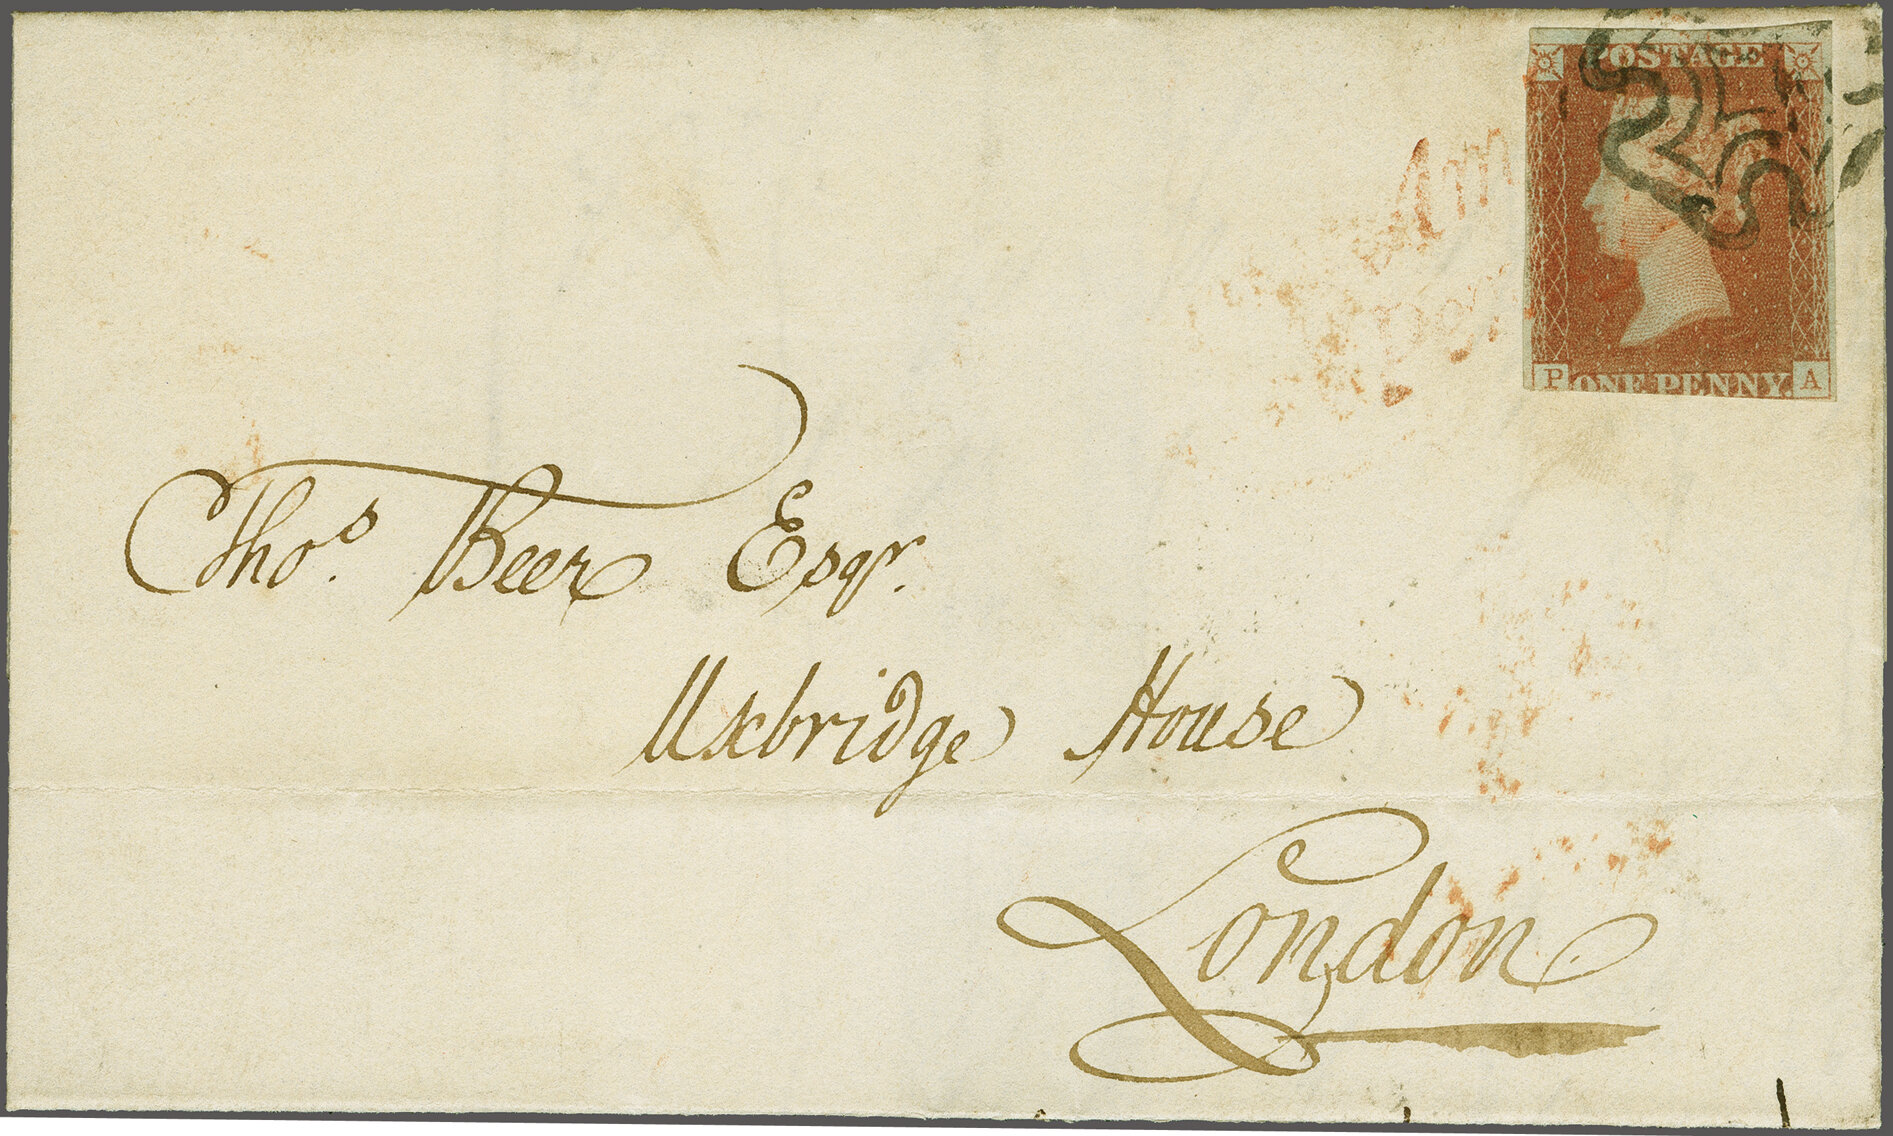 POSTAGE
P ONE PENNY. A
Thos. Beer Esqr.
Uxbridge House
London